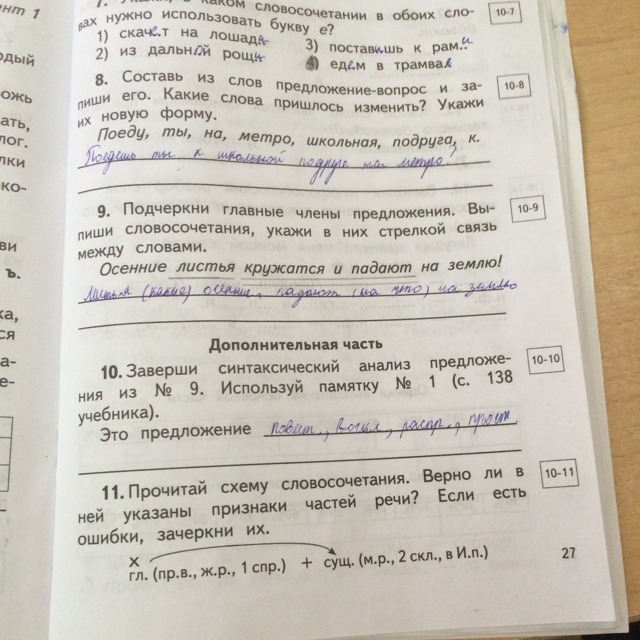 7. Укажи, в каком словосочетании в обоих сло-
вах нужно использовать букву е?
10-7
1) скачет на лошади
3) поставишь к рами
2) из дальней рощи
4) едем в трамвае
8. Составь из слов предложение-вопрос и за-
пиши его. Какие слова пришлось изменить? Укажи
их новую форму.
10-8
Поеду, ты, на, метро, школьная, подруга, к.
Поедешь ты к школьной подруге на метро?
9. Подчеркни главные члены предложения. Вы-
пиши словосочетания, укажи в них стрелкой связь
между словами.
10-9
Осенние листья кружатся и падают на землю!
Листья (какие) осенние, падают (на что) на землю
Дополнительная часть
10. Заверши синтаксический анализ предложе-
ния из № 9. Используй памятку № 1 (с. 138
учебника).
10-10
Это предложение повест., воскл., распр., прост.
11. Прочитай схему словосочетания. Верно ли в
ней указаны признаки частей речи? Если есть
ошибки, зачеркни их.
10-11
х
гл. (пр.в., ж.р., 1 спр.) + сущ. (м.р., 2 скл., в И.п.)
27
ант 1
рдый
рожь
ать,
лог.
лки
ко-
ви
ъ.
ка,
ся
а-
е-